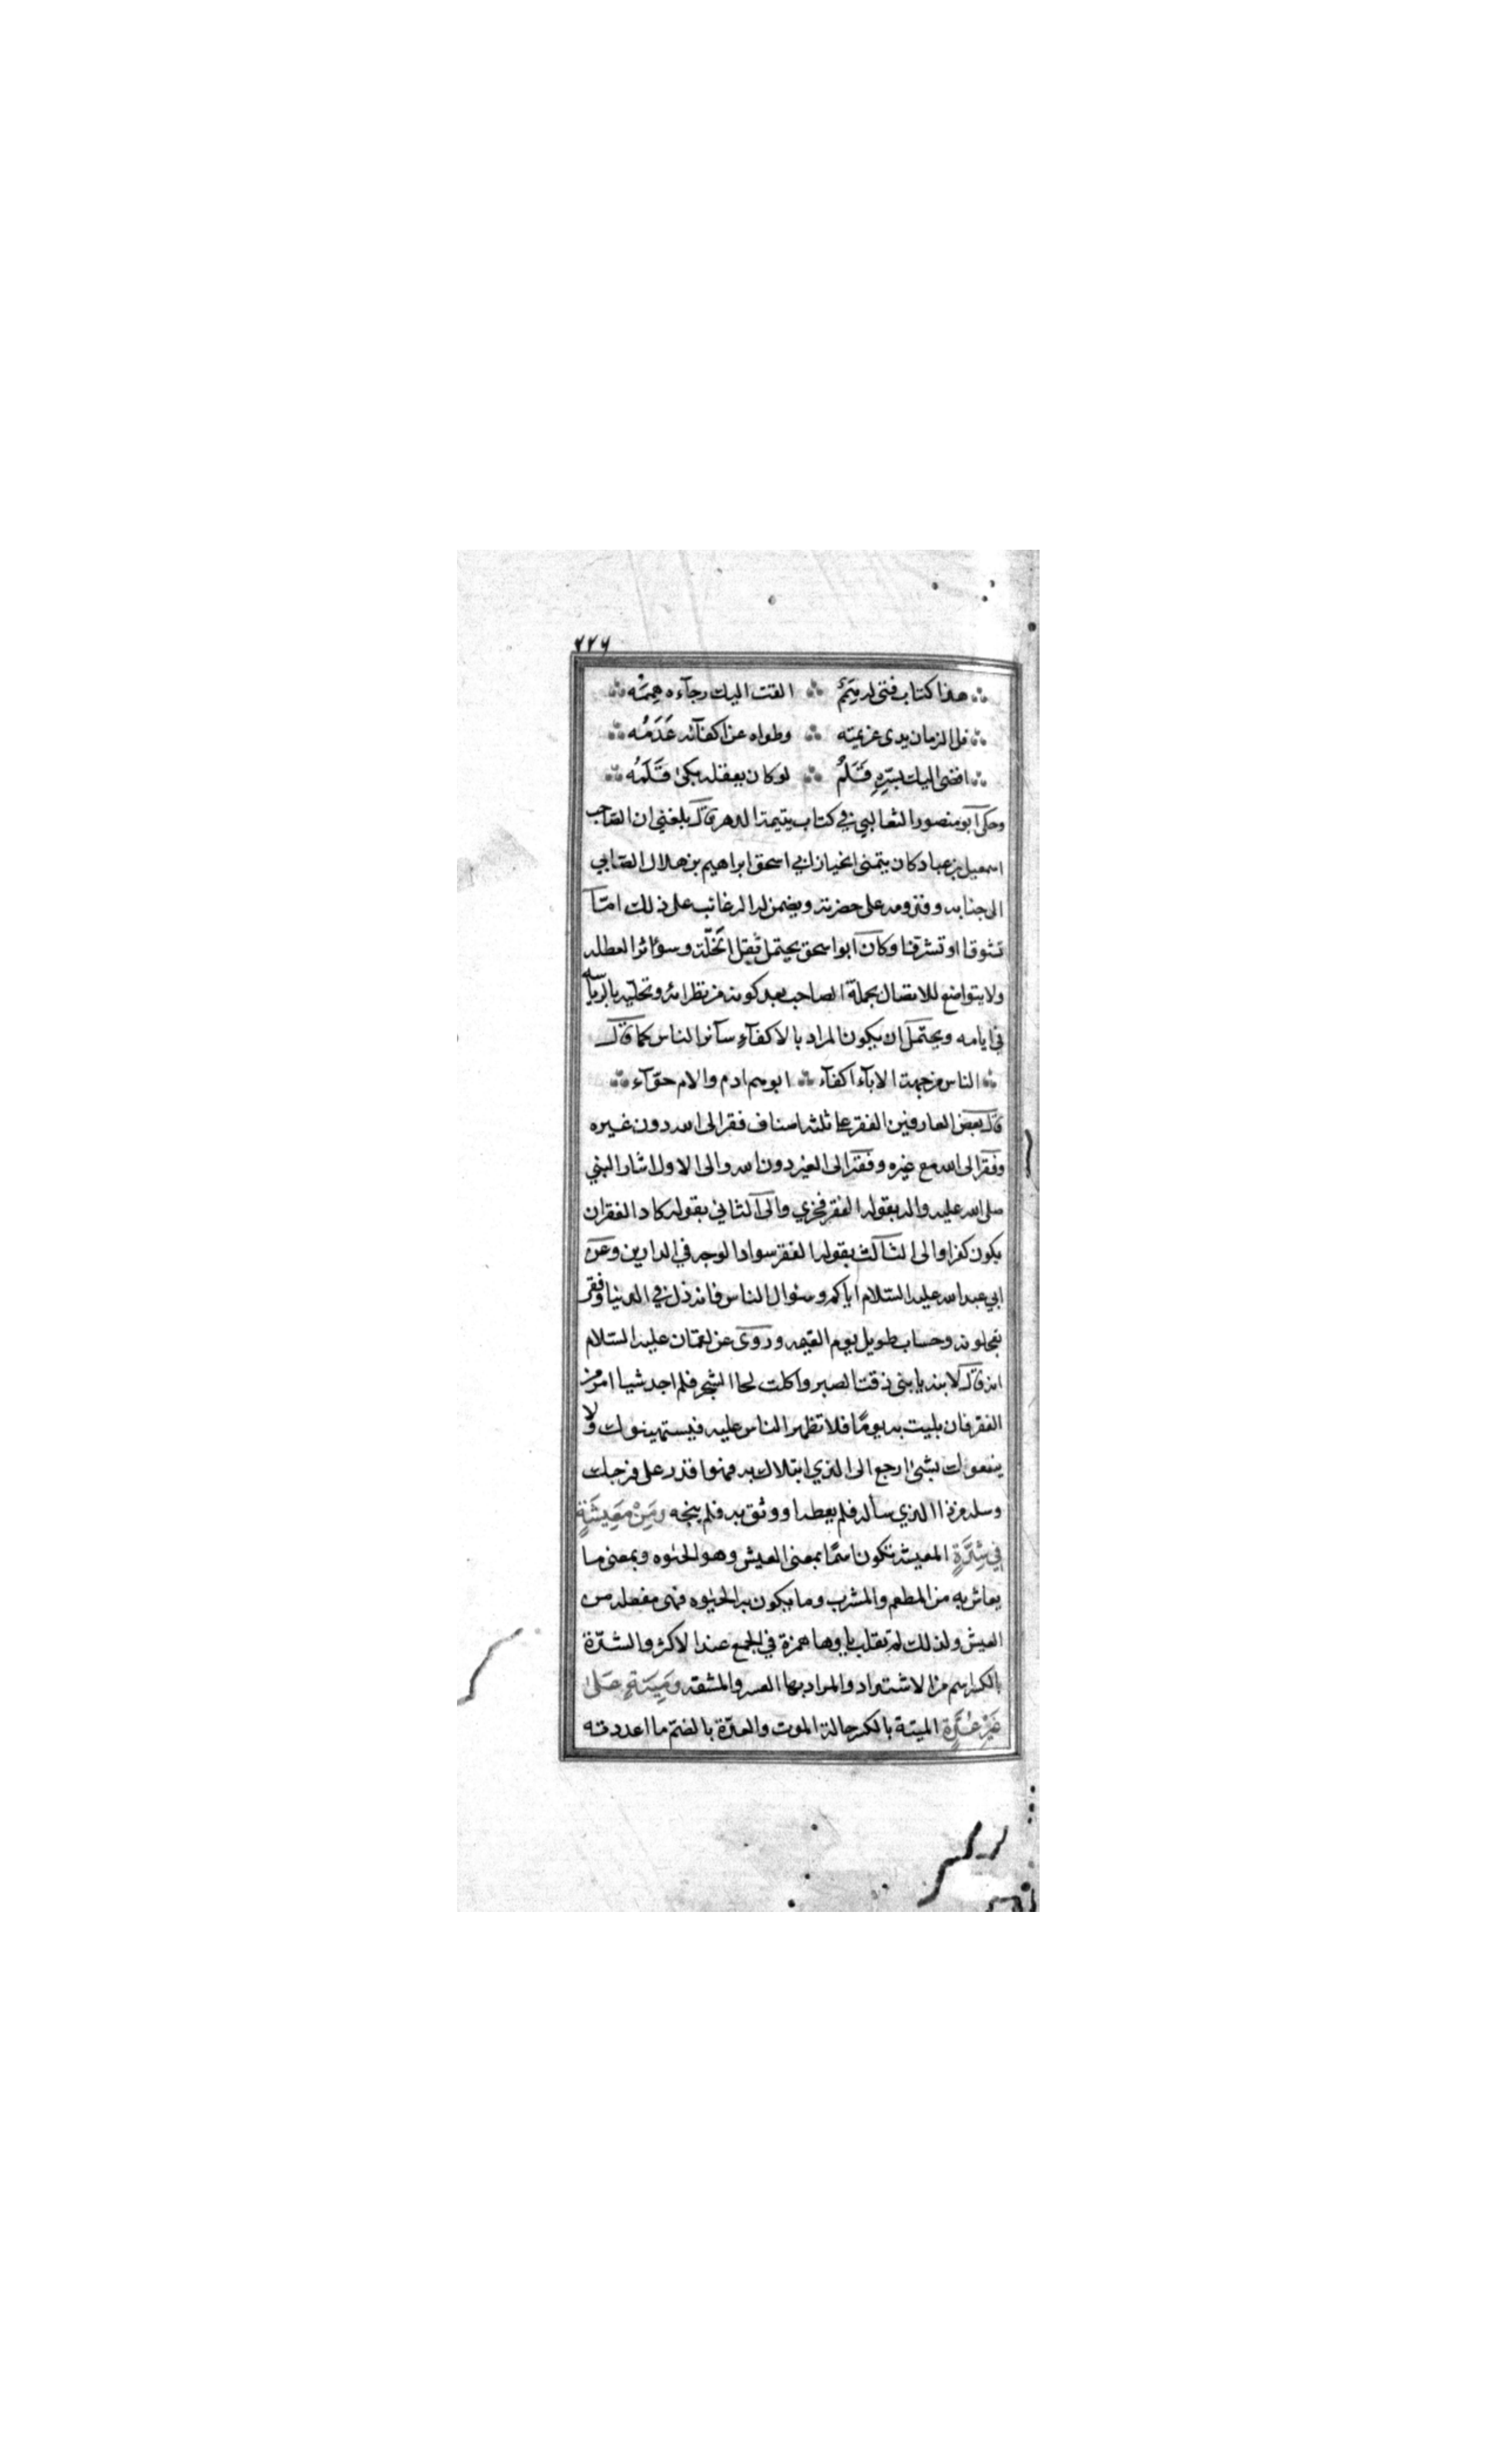 ٢٢٦
هذا كتاب فتى له همم ∴ القت اليك رجآءه هممه
فل الزمان يدى عزيمته ∴ وطواه عن اكفآئه عدمه
افضى اليك بسرّه قلم ∴ لو كان يعقله بكى قلمه
وحكى ابو منصور الثعالبي في كتاب يتيمة الدهر قال بلغني ان الصاحب
اسمعيل بن عباد كان يتمنى انحياز ابي اسحق ابراهيم بن هلال الصّابي
الى جنابه وقدومه على حضرته ويضمن له الرغائب على ذلك امّا
تشوقا او تشرّفا وكان ابو اسحق يحتمل ثقل الخلّة وسوء اثر العطله
ولا يتواضع للاتصال بجملة الصاحب بعد كونه من نظرائه وتحليه بالرياسه
في ايامه ويحتمل ان يكون المراد بالاكفآء سآئر الناس كما قال
الناس من جهة الابآء اكفآء ∴ ابوهم ادم والام حوّآء
قال بعض العارفين الفقر على ثلثه اصناف فقر الى الله دون غيره
وفقر الى الله مع غيره وفقر الى الغير دون الله والى الاول اشار النبي
صلى الله عليه واله بقوله الفقر فخري والى الثاني بقوله كاد الفقر ان
يكون كفرا والى الثالث بقوله الفقر سواد الوجه في الدارين وعن
ابي عبد الله عليه السّلام اياكم وسئوال الناس فانه ذل في الدنيا وفقر
تعجلونه وحساب طويل يوم القيمه وروى عن لقمان عليه السّلام
انه قال لابنه يا بنى ذقت الصبر واكلت لحا الشجر فلم اجد شيا امر من
الفقر فان بليت به يومًا فلا تظهر الناس عليه فيستهينوك ولا
ينفعوك بشئ ارجع الى الذي ابتلاك به فهو اقدر على فرجك
وسله من ذا الذي ساله فلم يعطه او وثق به فلم ينجه ومن معيشة
في شدّة المعيشه تكون اسمًا بمعنى العيش وهو الحيٰوه وبمعنى ما
يعاش به من المطعم والمشرب وما يكون به الحيٰوه فهى مفعله من
العيش ولذلك لم تقلب ياوها همزة في الجمع عند الاكثر والشدّة
بالكسر اسم من الاشتداد والمراد بها العسر والمشقه وميتة على
غير عدّة الميتة بالكسر حالة الموت والعدّة بالضمّ ما اعددته